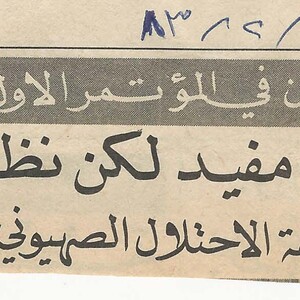 ٨٣/٢/
في المؤتمر الاول
مفيد لكن نظ
ة الاحتلال الصهيوني